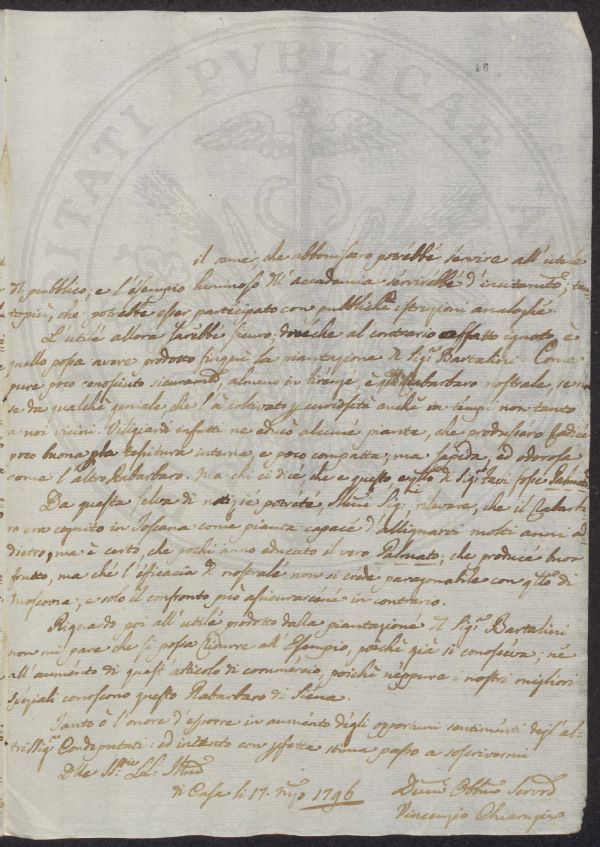 16
il seme, che abbonissero potrebbe servire all'utile
del pubblico; e l'esempio luminoso dell'accademia servirebbe d'incitamto; tan-
topiù, che potrebbe esser partecipato con pubbliche istruzioni analoghe.
L'utile allora sarebbe sicuro; dove che al contrario affatto ignoto è
quello possa avere prodotto finquì la piantazione del Sigr Bartalini. Come
pure poco conosciuto sicuramte, almeno in Firenze, è Rabarbaro nostrale, se
se da qualche geniale, che l'à coltivato p curiosità anche in tempi non tanto
a noi vicini. infatti ne educò alcune piante, che produssero Radice
poco buona p la tessitura interna, e poco compatta; ma sapida, ed odorosa
come l'altro Rabarbaro. Ma chi ci dice, che e questo e qllo del Sigr fosse Palmato
Da questa selva di notizie potrete, Sigr, rilevare, che il Rabarba
ro era capitato in Toscana come pianta capace d'allignarvi molti anni ad
dietro, ma è certo, che pochi anno educato il vero Palmato; che produce buon
frutto, ma che l'efficacia del nostrale non si crede paragonabile con qllo di
Moscovia, e solo il confronto può assicurarcene in contrario.
Riguardo poi all'utile prodotto dalla piantazione del Sigr Bartalini
non mi pare che si possa ridurre all'Esempio, poichè già si conosceva; nè
all'aumento di quest'articolo di commercio, poichè neppure i nostri migliori
speziali conoscono questo Rabarbaro di Siena.
Tanto ò l'onore d'esporre in aumento degli opportuni sentimenti degl'al-
tri SSigri Condeputati: ed intanto con pfetta stima passo a soscrivermi
Di Casa li 17. Mgio 1796
Obbmo Servre
Vincenzio Chiarugi